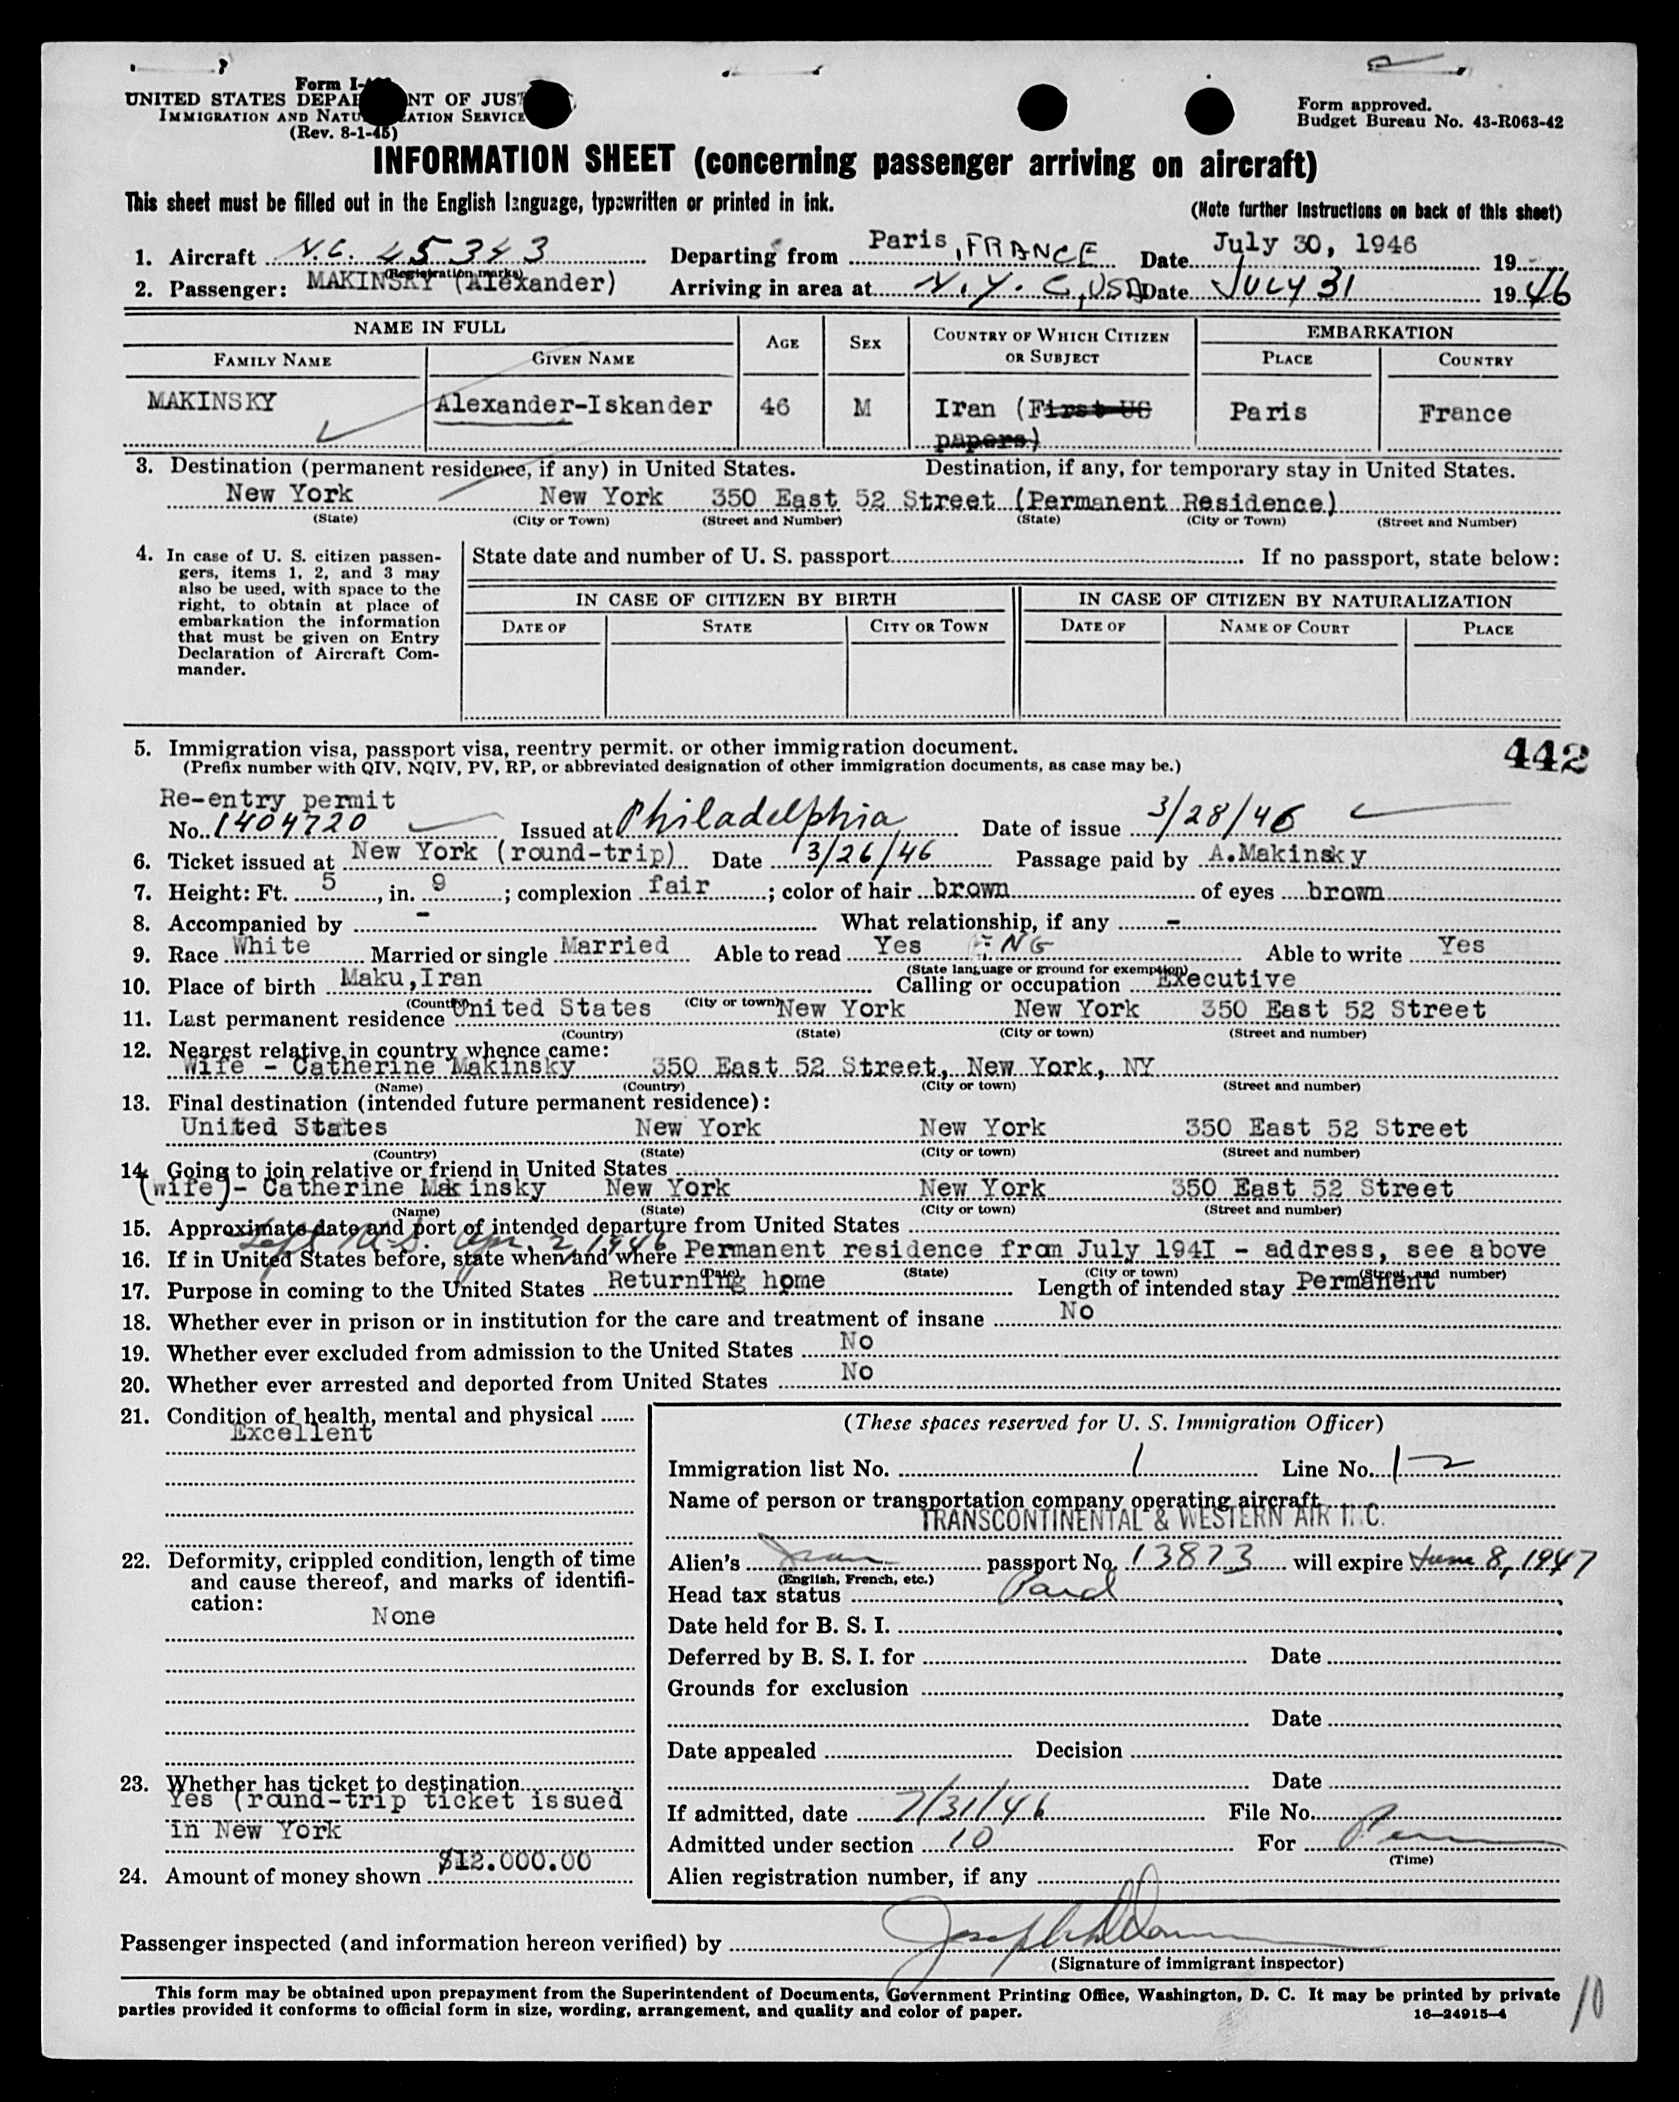 Form I-
UNITED STATES DEPA NT OF JUST
IMMIGRATION AND NATU ATION SERVICE
(Rev. 8-1-45)
Form approved.
Budget Bureau No. 43-R063-42
INFORMATION SHEET (concerning passenger arriving on aircraft)
This sheet must be filled out in the English language, typewritten or printed in ink.
(Note further instructions on back of this sheet)
1. Aircraft N.C. 45343 Departing from Paris, FRANCE Date July 30, 1946 19
(Registration marks)
2. Passenger: MAKINSKY (Alexander) Arriving in area at N.Y.C, USA Date JULY 31 1946
NAME IN FULL AGE SEX COUNTRY OF WHICH CITIZEN OR SUBJECT EMBARKATION
FAMILY NAME GIVEN NAME PLACE COUNTRY
MAKINSKY Alexander-Iskander 46 M Iran (First US Paris France
papers)
3. Destination (permanent residence, if any) in United States. Destination, if any, for temporary stay in United States.
New York New York 350 East 52 Street (Permanent Residence)
(State) (City or Town) (Street and Number) (State) (City or Town) (Street and Number)
4. In case of U. S. citizen passen-
gers, items 1, 2, and 3 may
also be used, with space to the
right, to obtain at place of
embarkation the information
that must be given on Entry
Declaration of Aircraft Com-
mander.
State date and number of U. S. passport If no passport, state below:
IN CASE OF CITIZEN BY BIRTH IN CASE OF CITIZEN BY NATURALIZATION
DATE OF STATE CITY OR TOWN DATE OF NAME OF COURT PLACE
5. Immigration visa, passport visa, reentry permit. or other immigration document.
(Prefix number with QIV, NQIV, PV, RP, or abbreviated designation of other immigration documents, as case may be.)
442
Re-entry permit
No. 1404720 Issued at Philadelphia Date of issue 3/28/46
6. Ticket issued at New York (round-trip) Date 3/26/46 Passage paid by A.Makinsky
7. Height: Ft. 5, in. 9; complexion fair; color of hair brown of eyes brown
8. Accompanied by - What relationship, if any -
9. Race White Married or single Married Able to read Yes ENG Able to write Yes
(State language or ground for exemption)
10. Place of birth Maku,Iran Calling or occupation Executive
(Country) (City or town)
11. Last permanent residence United States New York New York 350 East 52 Street
(Country) (State) (City or town) (Street and number)
12. Nearest relative in country whence came:
Wife - Catherine Makinsky 350 East 52 Street, New York, NY
(Name) (Country) (City or town) (Street and number)
13. Final destination (intended future permanent residence):
United States New York New York 350 East 52 Street
(Country) (State) (City or town) (Street and number)
14. Going to join relative or friend in United States
(wife)- Catherine Makinsky New York New York 350 East 52 Street
(Name) (State) (City or town) (Street and number)
15. Approximate date and port of intended departure from United States
Left U.S. Apr 2 1946
16. If in United States before, state when and where Permanent residence from July 1941 - address, see above
(Date) (State) (City or town) (Street and number)
17. Purpose in coming to the United States Returning home Length of intended stay Permanent
18. Whether ever in prison or in institution for the care and treatment of insane No
19. Whether ever excluded from admission to the United States No
20. Whether ever arrested and deported from United States No
21. Condition of health, mental and physical
Excellent
22. Deformity, crippled condition, length of time
and cause thereof, and marks of identifi-
cation:
None
23. Whether has ticket to destination
Yes (round-trip ticket issued
in New York
24. Amount of money shown $12.000.00
(These spaces reserved for U. S. Immigration Officer)
Immigration list No. 1 Line No. 12
Name of person or transportation company operating aircraft
TRANSCONTINENTAL & WESTERN AIR INC.
Alien's Iran passport No. 13873 will expire June 8, 1947
(English, French, etc.)
Head tax status Paid
Date held for B. S. I.
Deferred by B. S. I. for Date
Grounds for exclusion
Date
Date appealed Decision
Date
If admitted, date 7/31/46 File No.
Admitted under section 10 For Perm
(Time)
Alien registration number, if any
Passenger inspected (and information hereon verified) by
(Signature of immigrant inspector)
This form may be obtained upon prepayment from the Superintendent of Documents, Government Printing Office, Washington, D. C. It may be printed by private
parties provided it conforms to official form in size, wording, arrangement, and quality and color of paper.
16—24915-4
10